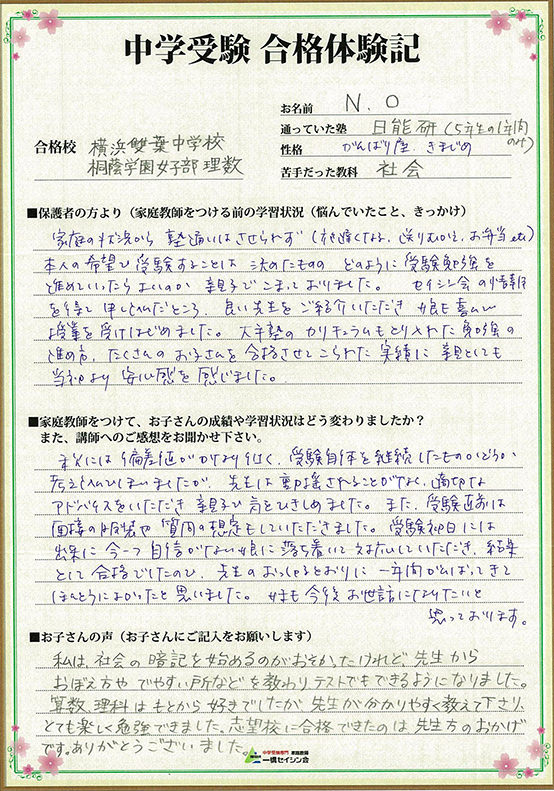 中学受験 合格体験記
お名前 N.O
合格校 横浜雙葉中学校
桐蔭学園女子部 理数
通っていた塾 日能研(5年生の1年間のみ)
性格 がんばり屋 きまじめ
苦手だった教科 社会
■保護者の方より(家庭教師をつける前の学習状況(悩んでいたこと、きっかけ)
家庭の状況から 塾通いはさせられず(夜遅くなる、送りむかえ、お弁当etc)
本人の希望で受験することは 決めたものの どのように受験勉強を
進めていったらよいのか 親子でこまっておりました。 セイシン会の情報
を得て 申し込んだところ、良い先生を ご紹介いただき 娘も喜んで
授業を受けはじめました。大手塾の カリキュラムもとり入れた 勉強の
進め方、たくさんの お子さんを 合格させてこられた 実績に 親としても
当初より 安心感を 感じました。
■家庭教師をつけて、お子さんの成績や学習状況はどう変わりましたか?
また、講師へのご感想をお聞かせ下さい。
秋には 偏差値が かなり低く、受験自体を継続したものかどうか
考え込んでしまいましたが、先生は 動揺されることがなく、適切な
アドバイスをいただき 親子で 気をひきしめました。また、受験直前は
面接の服装や 質問の想定もしていただきました。受験初日には
出来に 今一つ 自信がない娘に 落ち着いて 対応していただき、結果
として 合格でしたので、先生の おっしゃるとおりに 一年間 がんばってきて
ほんとうによかったと 思いました。 妹も 今後 お世話になりたいと
思っております。
■お子さんの声(お子さんにご記入をお願いします)
私は、社会の 暗記を始めるのがおそかったけれど、先生から
おぼえ方や でやすい所などを 教わり テストでもできるようになりました。
算数、理科は もとから 好きでしたが 先生が 分かりやすく教えて下さり、
とても楽しく勉強できました。志望校に合格できたのは 先生方のおかげ
です。ありがとうございました。
中学受験専門 家庭教師
一橋セイシン会